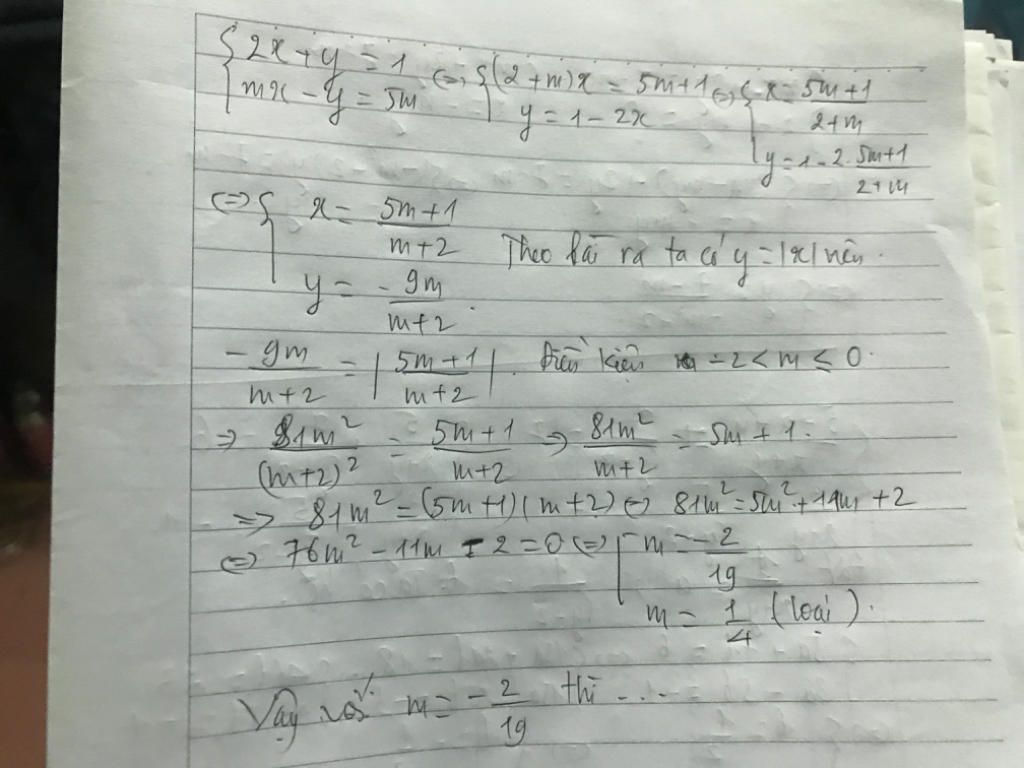 { 2x + y = 1 <=> { (2+m)x = 5m+1 <=> { x = (5m+1)/(2+m)
{ mx - y = 5m { y = 1 - 2x { y = 1 - 2.(5m+1)/(2+m)
<=> { x = (5m+1)/(m+2)
{ y = -9m/(m+2). Theo bài ra ta có y = |x| nên.
-9m/(m+2) = |(5m+1)/(m+2)|. Điều kiện -2 < m ≤ 0.
=> 81m²/(m+2)² = (5m+1)/(m+2) => 81m²/(m+2) = 5m + 1.
=> 81m² = (5m+1)(m+2) <=> 81m² = 5m² + 11m + 2
<=> 76m² - 11m - 2 = 0 <=> [ m = -2/19
[ m = 1/4 (loại).
Vậy với m = -2/19 thì ....